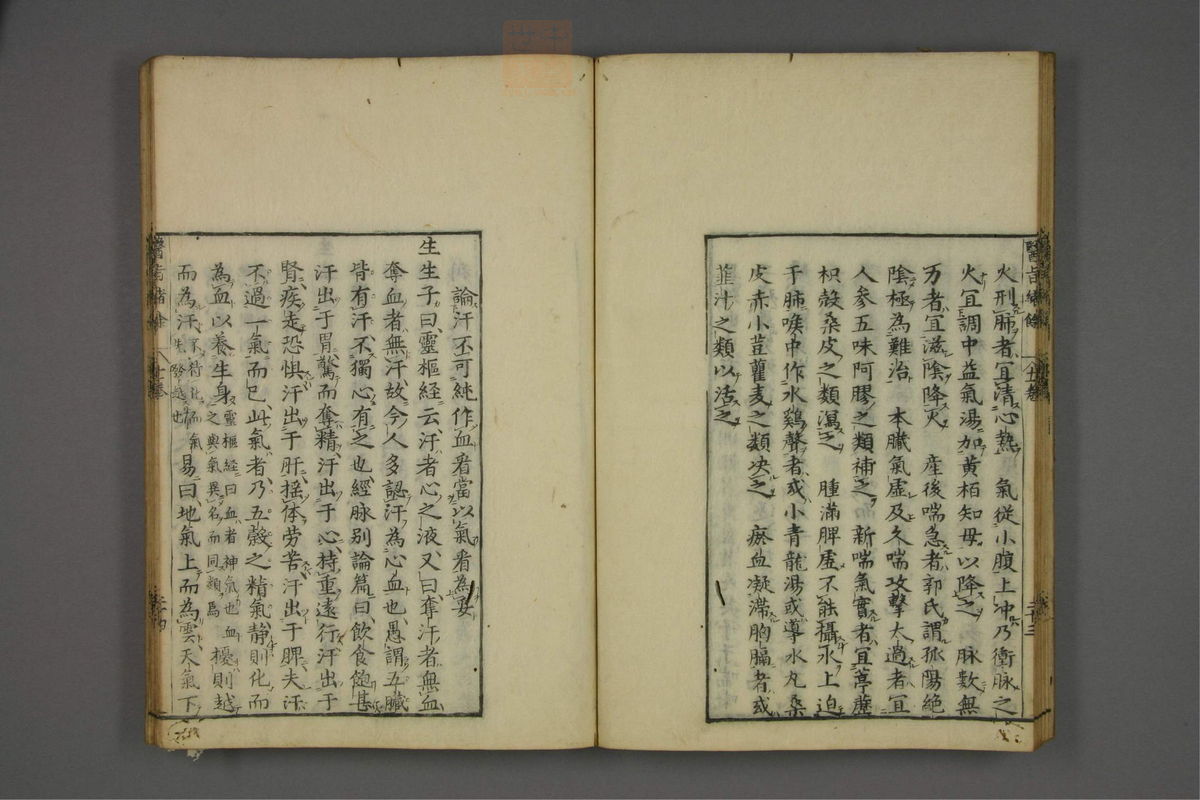 火刑肺者宜清心熱　氣從小腹上冲乃衝脉之
火宜調中益氣湯加黄栢知母以降之　脉數無
力者宜滋陰降火　産後喘急者郭氏謂孤陽絶
陰極為難治　本臓氣虚及久喘攻擊太過者宜
人參五味阿膠之類補之　新喘氣實者宜葶藶
枳殻桑皮之類瀉之　腫滿脾虚不能攝水上迫
于肺喉中作水鷄聲者或小青龍湯或導水丸桑
皮赤小荳藿麦之類决之　瘀血凝滯胸膈者或
韮汁之類以活之
論汗不可純作血看當以氣看為妥
生生子曰靈樞経云汗者心之液又曰奪汗者無血
奪血者無汗故今人多認汗為心血也愚謂五臓
皆有汗不獨心有之也經脉别論篇曰飲食飽甚
汗出于胃驚而奪精汗出于心持重遠行汗出于
腎疾走恐惧汗出于肝揺体劳苦汗出于脾夫汗
不過一氣而已此氣者乃五穀之精氣静則化而
為血以養生身靈樞経曰血者神氣也血之與氣異名而同類焉擾則越
而為汗不待化而氣先發越也易曰地氣上而為雲天氣下
醫旨緒餘